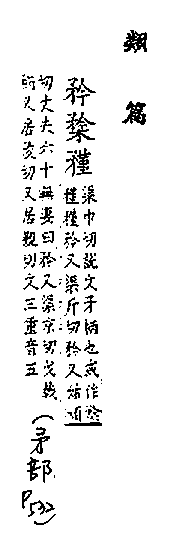 類篇
矜䅖𥎊
渠巾切說文矛柄也或作䅖
𥎊𥎊矜又渠斤切矜又姑頑
切丈夫六十無妻曰矜又渠京切戈戟
矜又居陵切又居覲切文三重音五
(矛部
P532)